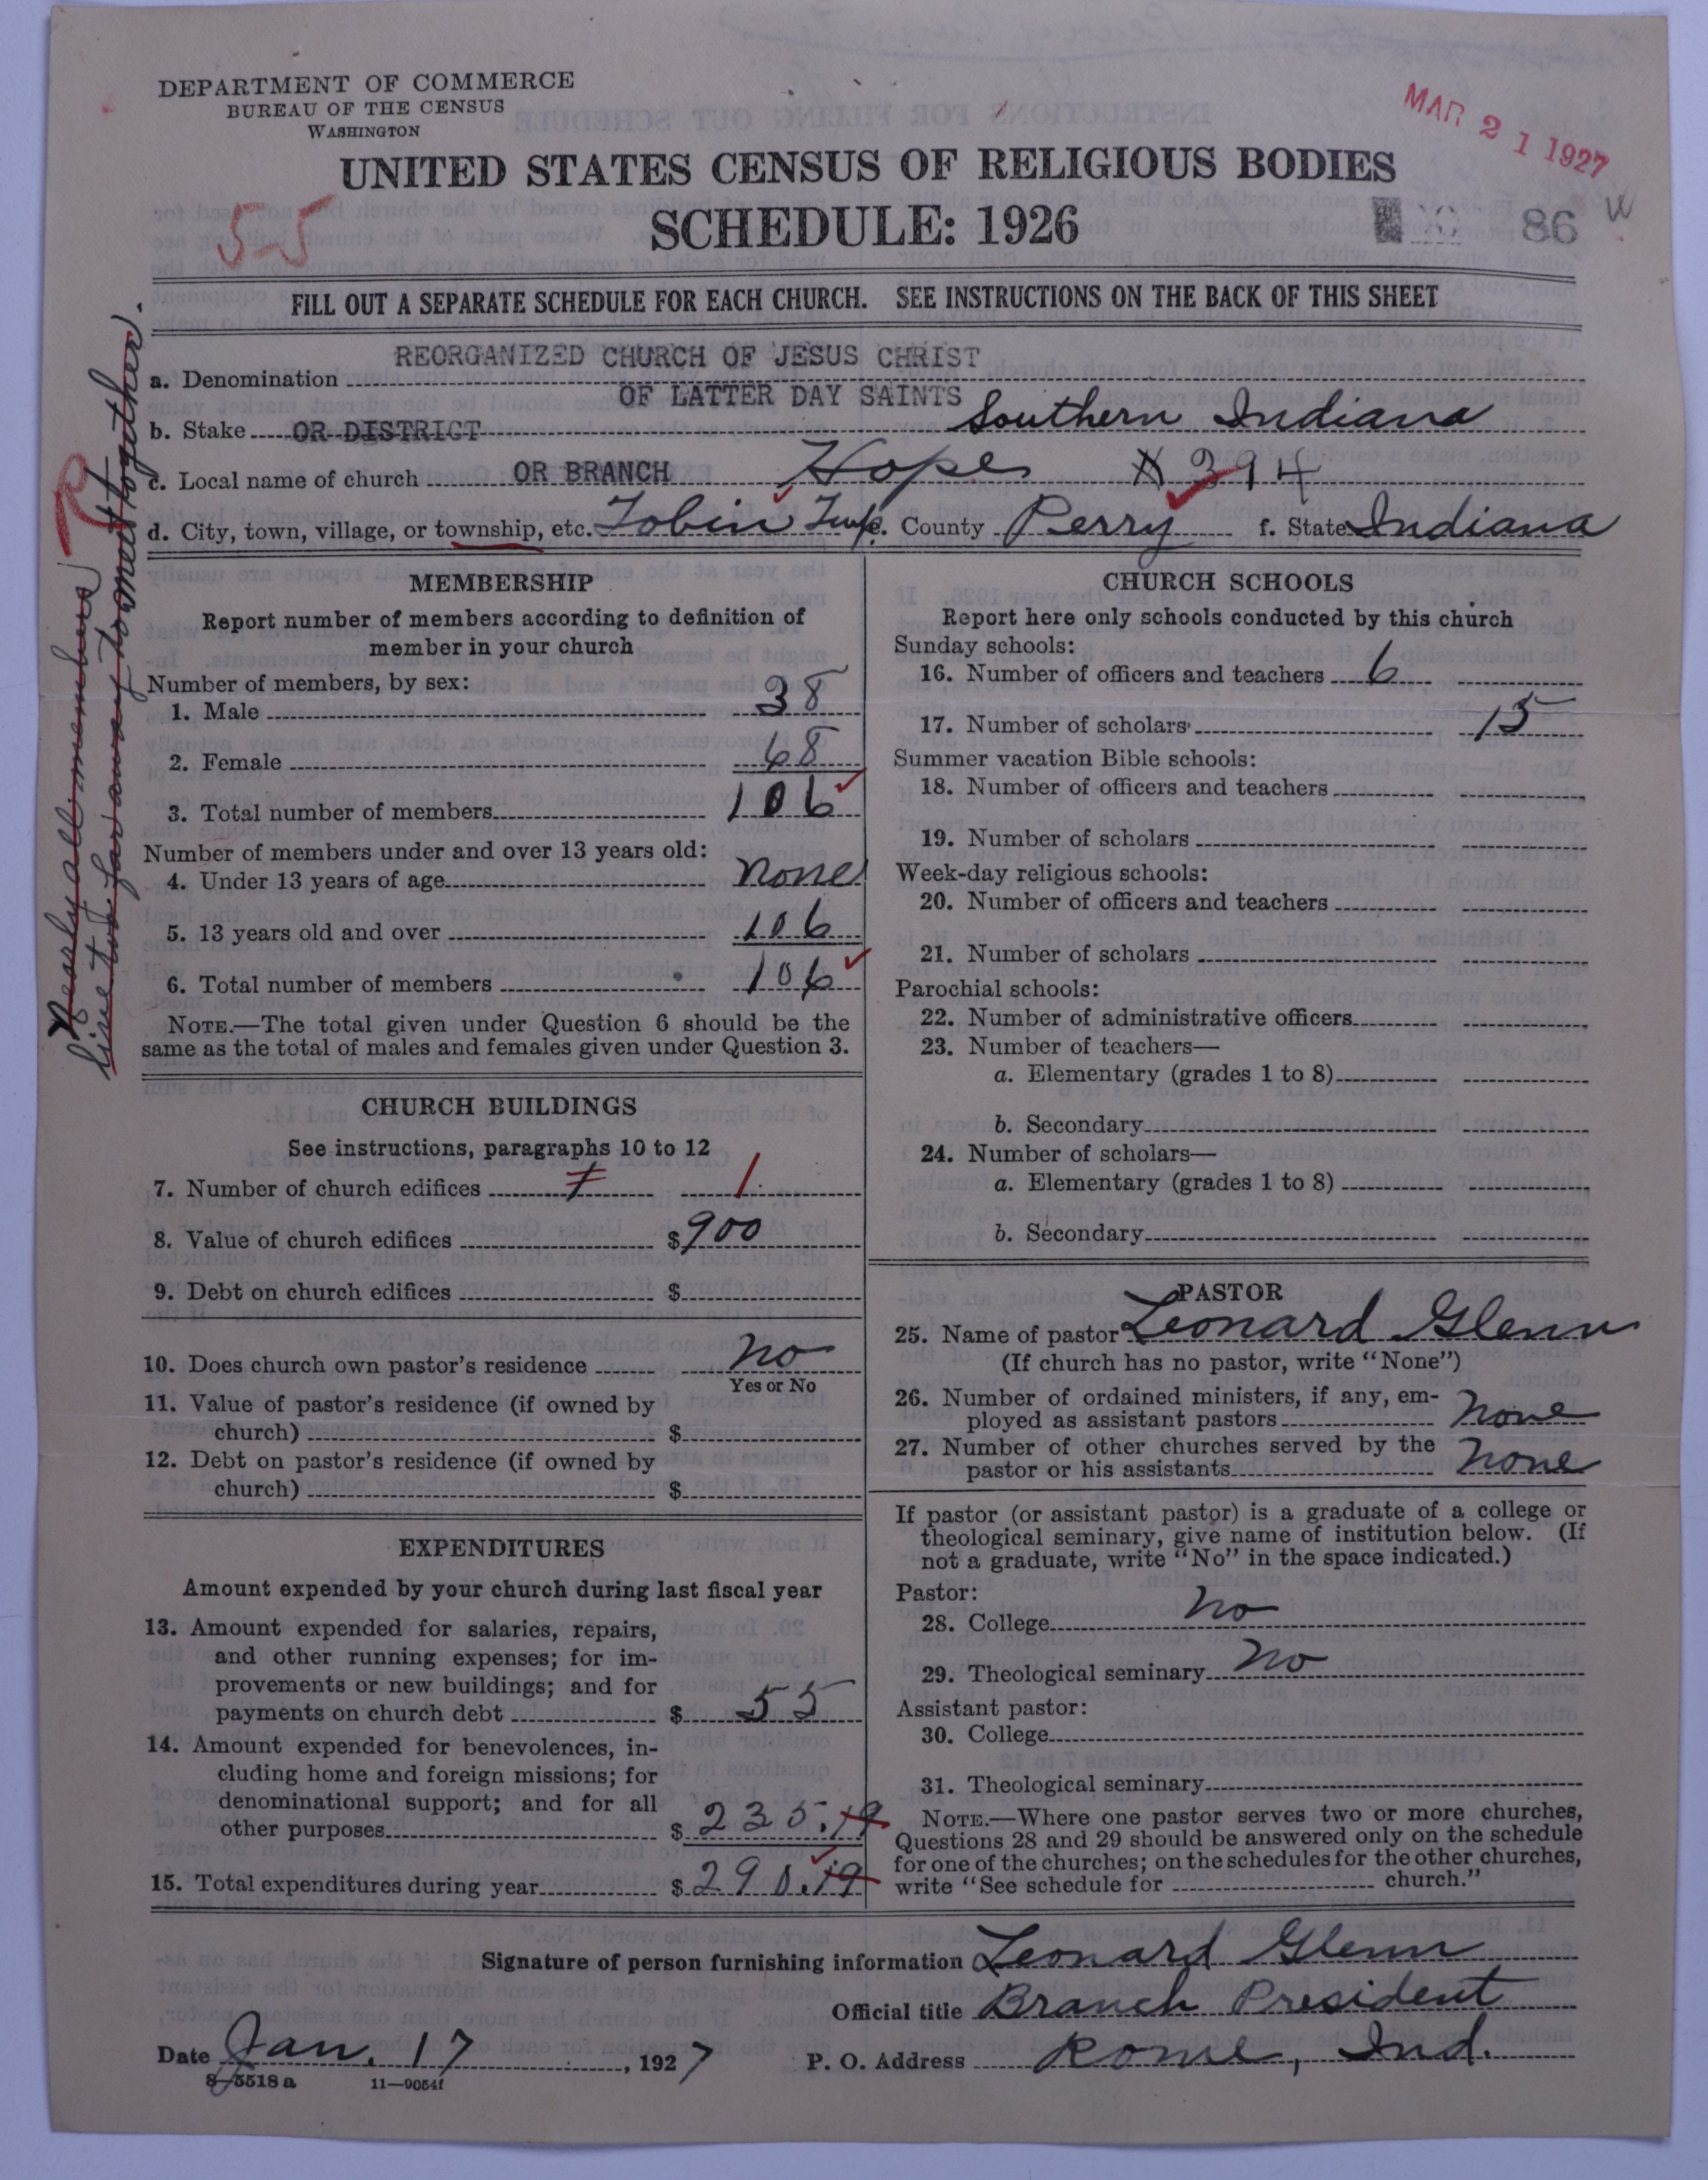 DEPARTMENT OF COMMERCE
BUREAU OF THE CENSUS
WASHINGTON
MAR 21 1927
UNITED STATES CENSUS OF RELIGIOUS BODIES
SCHEDULE: 1926
55
86 W
FILL OUT A SEPARATE SCHEDULE FOR EACH CHURCH. SEE INSTRUCTIONS ON THE BACK OF THIS SHEET
REORGANIZED CHURCH OF JESUS CHRIST
a. Denomination
OF LATTER DAY SAINTS
b. Stake OR DISTRICT Southern Indiana
c. Local name of church OR BRANCH Hope # 394
d. City, town, village, or township, etc. Tobin Twp. e. County Perry f. State Indiana
R
Nearly all members
live too far away to meet together.
MEMBERSHIP
Report number of members according to definition of
member in your church
Number of members, by sex:
1. Male 38
2. Female 68
3. Total number of members 106
Number of members under and over 13 years old:
4. Under 13 years of age none
5. 13 years old and over 106
6. Total number of members 106
NOTE.—The total given under Question 6 should be the
same as the total of males and females given under Question 3.
CHURCH BUILDINGS
See instructions, paragraphs 10 to 12
7. Number of church edifices 1 1
8. Value of church edifices $900
9. Debt on church edifices $
10. Does church own pastor's residence no
Yes or No
11. Value of pastor's residence (if owned by
church) $
12. Debt on pastor's residence (if owned by
church) $
EXPENDITURES
Amount expended by your church during last fiscal year
13. Amount expended for salaries, repairs,
and other running expenses; for im-
provements or new buildings; and for
payments on church debt $ 55
14. Amount expended for benevolences, in-
cluding home and foreign missions; for
denominational support; and for all
other purposes $ 235.19
15. Total expenditures during year $ 290.19
CHURCH SCHOOLS
Report here only schools conducted by this church
Sunday schools:
16. Number of officers and teachers 6
17. Number of scholars 15
Summer vacation Bible schools:
18. Number of officers and teachers
19. Number of scholars
Week-day religious schools:
20. Number of officers and teachers
21. Number of scholars
Parochial schools:
22. Number of administrative officers
23. Number of teachers—
a. Elementary (grades 1 to 8)
b. Secondary
24. Number of scholars—
a. Elementary (grades 1 to 8)
b. Secondary
PASTOR
25. Name of pastor Leonard Glenn
(If church has no pastor, write "None")
26. Number of ordained ministers, if any, em-
ployed as assistant pastors none
27. Number of other churches served by the
pastor or his assistants none
If pastor (or assistant pastor) is a graduate of a college or
theological seminary, give name of institution below. (If
not a graduate, write "No" in the space indicated.)
Pastor:
28. College no
29. Theological seminary no
Assistant pastor:
30. College
31. Theological seminary
NOTE.—Where one pastor serves two or more churches,
Questions 28 and 29 should be answered only on the schedule
for one of the churches; on the schedules for the other churches,
write "See schedule for church."
Signature of person furnishing information Leonard Glenn
Official title Branch President
Date Jan. 17, 1927 P. O. Address Rome, Ind.
8-5518a 11—9054f